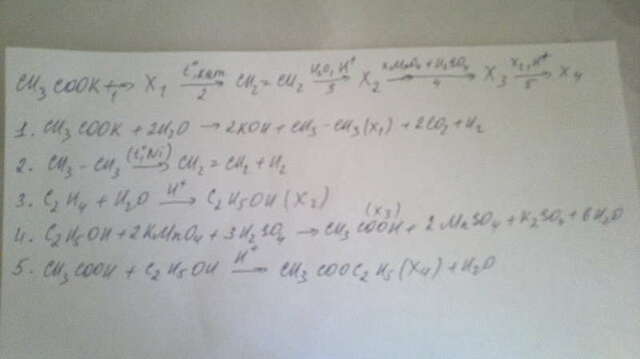 CH₃COOK + → X₁ t°, кат → CH₂=CH₂ H₂O, H⁺ → X₂ KMnO₄ + H₂SO₄ → X₃ X₂, H⁺ → X₄
1 2 3 4 5
1. CH₃COOK + 2H₂O → 2KOH + CH₃-CH₃(X₁) + 2CO₂ + H₂
2. CH₃-CH₃ (t°, Ni) → CH₂=CH₂ + H₂
3. C₂H₄ + H₂O H⁺ → C₂H₅OH (X₂)
4. C₂H₅OH + 2KMnO₄ + 3H₂SO₄ → CH₃COOH (X₃) + 2MnSO₄ + K₂SO₄ + 6H₂O
5. CH₃COOH + C₂H₅OH H⁺ → CH₃COOC₂H₅(X₄) + H₂O